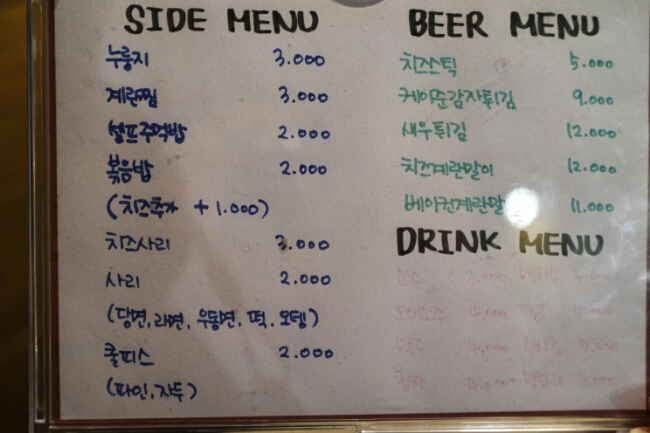 SIDE MENU
누룽지 3.000
계란찜 3.000
셀프주먹밥 2.000
볶음밥 2.000
(치즈추가 +1.000)
치즈사리 3.000
사리 2.000
(당면, 라면, 우동면, 떡, 오뎅)
쿨피스 2.000
(파인, 자두)
BEER MENU
치즈스틱 5.000
케이준감자튀김 9.000
새우튀김 12.000
치즈계란말이 12.000
베이컨계란말이 11.000
DRINK MENU
소주
맥주
청하 4.000